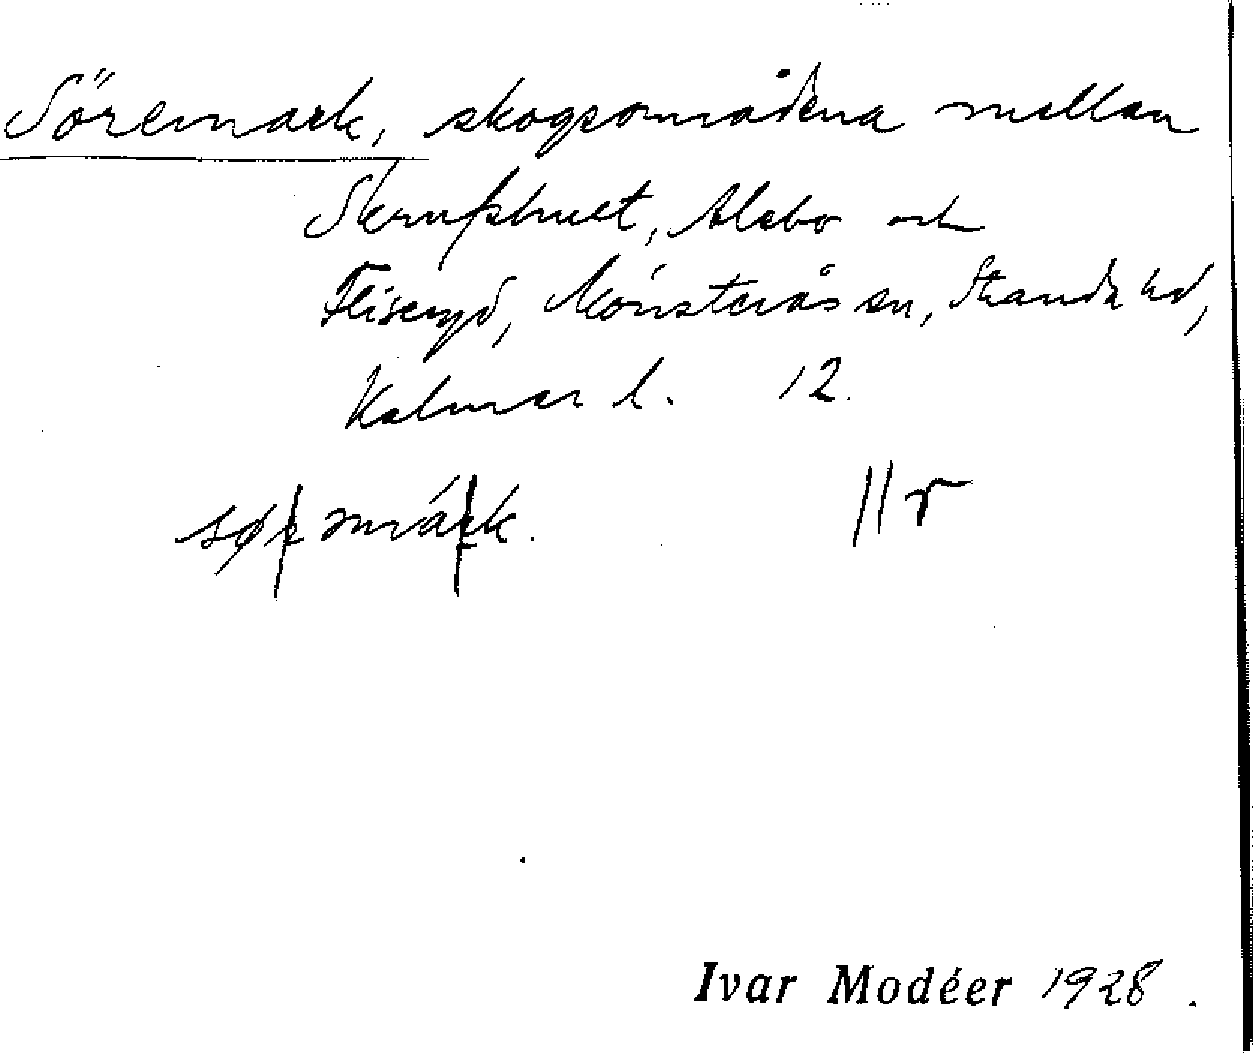 Söremark, skogsområdena mellan
Skruvshult, Alebo och
Fliseryd, Mönsterås sn, Stranda hd,
Kalmar l. 12.
märk.
|| r
Ivar Modéer 1928.